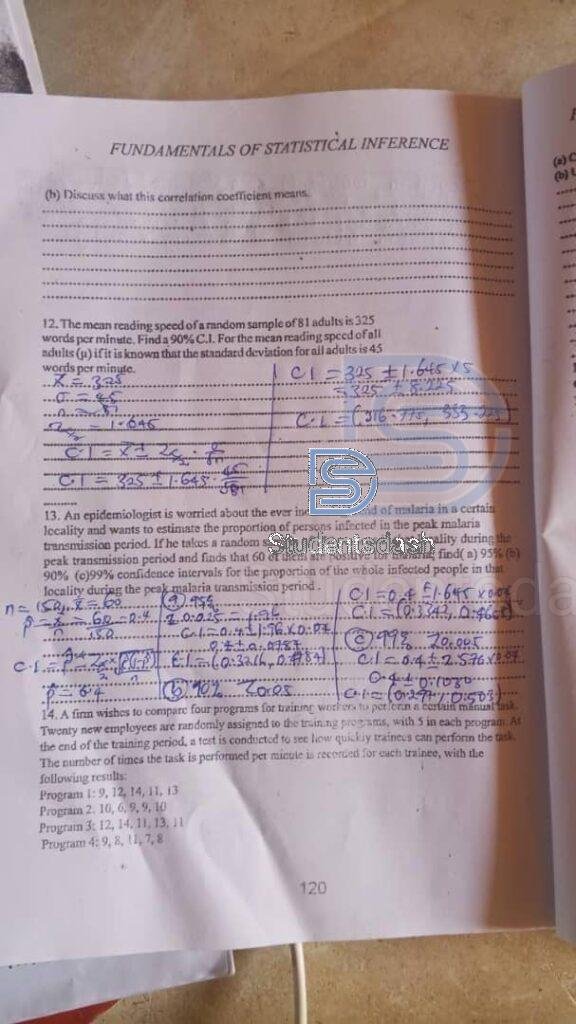 FUNDAMENTALS OF STATISTICAL INFERENCE
(b) Discuss what this correlation coefficient means.
12. The mean reading speed of a random sample of 81 adults is 325
words per minute. Find a 90% C.I. For the mean reading speed of all
adults (μ) if it is known that the standard deviation for all adults is 45
words per minute.
x̄ = 325
σ = 45
n = 81
= 1.645
C.I = x̄ ± Zα/2 · σ/√n
C.I = 325 ± 1.645 · 45/√81
C.I = 325 ± 1.645 × 5
= 325 ± 8.225
C.I = (316.775, 333.225)
Studentsdash
13. An epidemiologist is worried about the ever of malaria in a certain
locality and wants to estimate the proportion of persons infected in the peak malaria
transmission period. If he takes a random during the
peak transmission period and finds that 60 of find( a) 95% (b)
90% (c)99% confidence intervals for the proportion of the whole infected people in that
locality during the peak malaria transmission period .
n = 150, x = 60
p = x/n = 60/150 = 0.4
p = 0.4
(a) 95%
Z 0.025 = 1.96
C.I = 0.4 ± 1.96 × 0.04
C.I = (0.3216, 0.4784)
(b) 90% Z0.05
C.I = 0.4 ± 1.645 × 0.04
(c) 99% Z0.005
C.I = 0.4 ± 2.576 × 0.04
0.4 ± 0.1030
14. A firm wishes to compare four programs for training workers to perform a certain manual task.
Twenty new employees are randomly assigned to the training programs, with 5 in each program. At
the end of the training period, a test is conducted to see how quickly trainees can perform the task.
The number of times the task is performed per minute is recorded for each trainee, with the
following results:
Program 1: 9, 12, 14, 11, 13
Program 2. 10, 6, 9, 9, 10
Program 3: 12, 14, 11, 13, 11
Program 4: 9, 8, 11, 7, 8
120